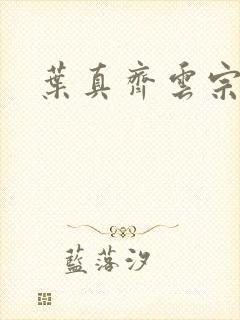 葉真齊雲宗
藍落汐